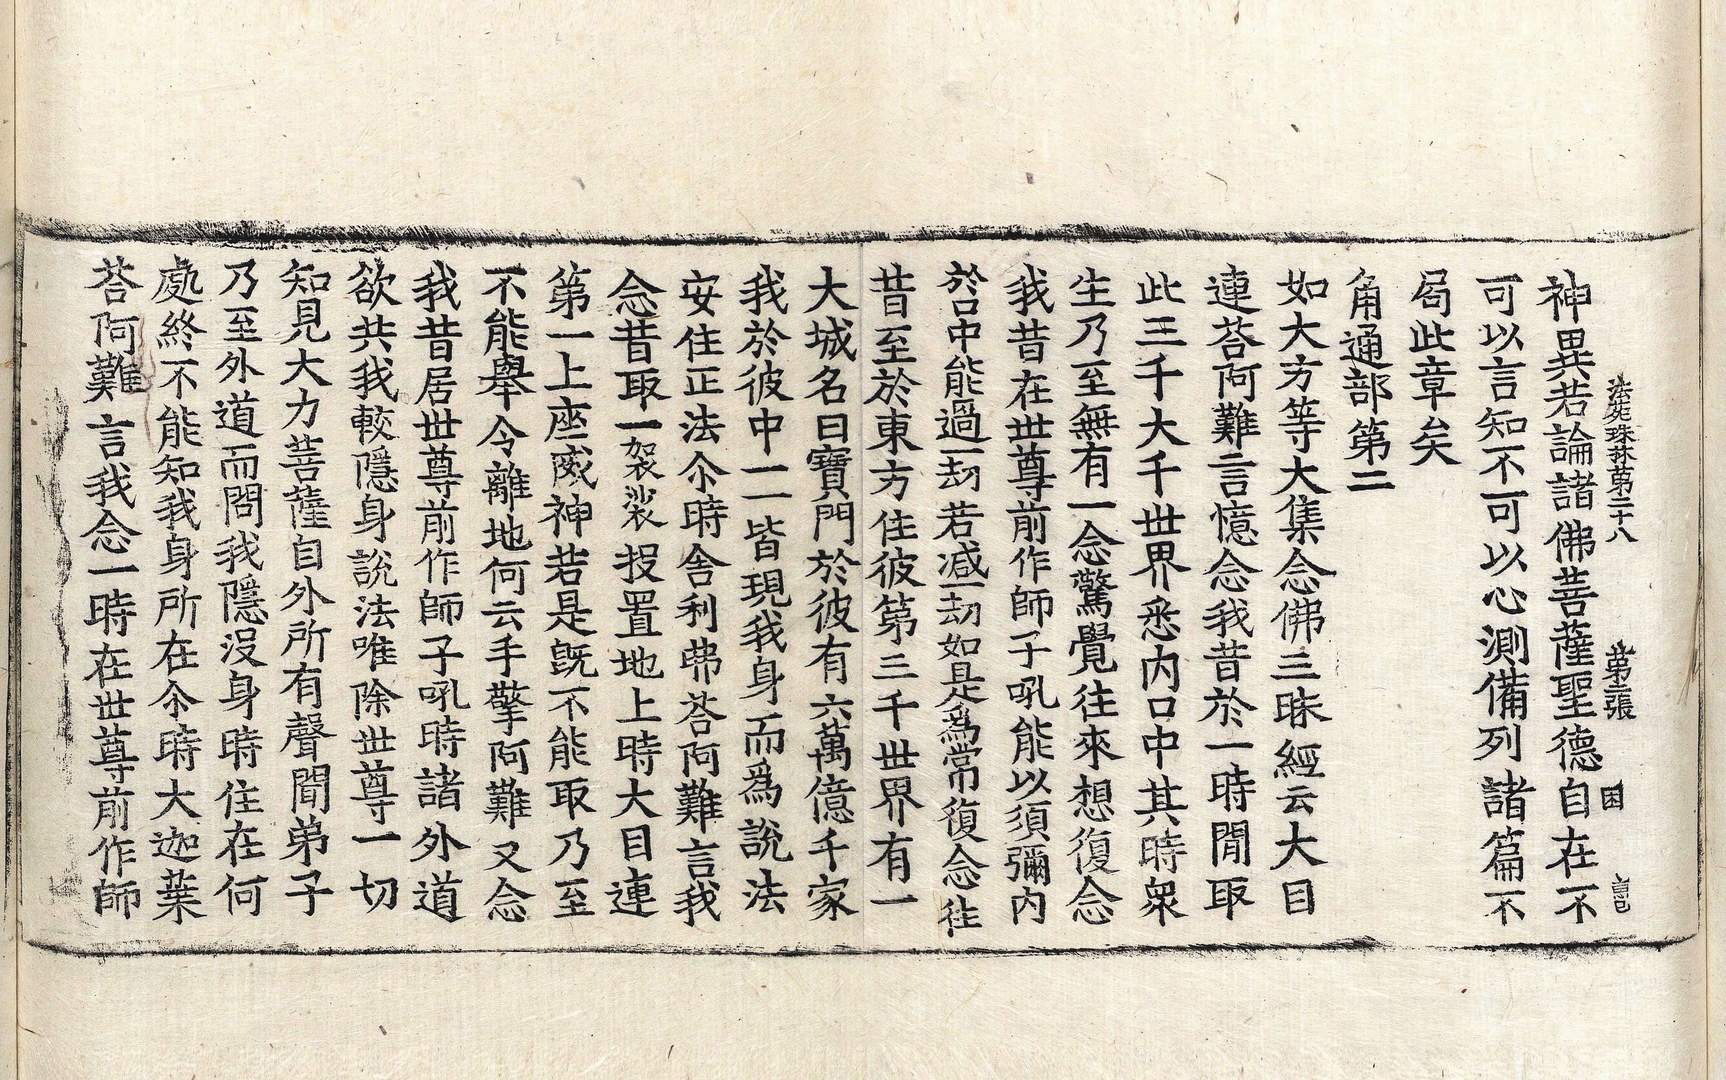 法苑珠林第二十八 第三張 困 言己
神異若論諸佛菩薩聖德自在不
可以言知不可以心測備列諸篇不
局此章矣
角通部第二
如大方等大集念佛三昧經云大目
連荅阿難言憶念我昔於一時閒取
此三千大千世界悉內口中其時衆
生乃至無有一念驚覺往來想復念
我昔在世尊前作師子吼能以須彌內
於口中能過一劫若减一劫如是爲常復念往
昔至於東方住彼第三千世界有一
大城名曰寶門於彼有六萬億千家
我於彼中一一皆現我身而爲說法
安住正法尒時舍利弗荅阿難言我
念昔取一袈裟投置地上時大目連
第一上座威神若是旣不能取乃至
不能舉令離地何云手擎阿難又念
我昔居世尊前作師子吼時諸外道
欲共我較隱身說法唯除世尊一切
知見大力菩薩自外所有聲聞弟子
乃至外道而問我隱沒身時住在何
處終不能知我身所在尒時大迦葉
荅阿難言我念一時在世尊前作師